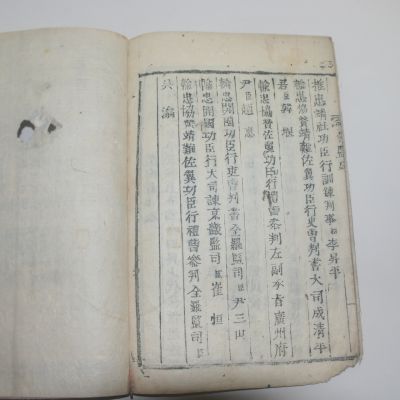 推忠靖社功臣行訓鍊判事臣李昇平
輸忠協贊靖難佐翼功臣行吏曹判書大司成清平
君臣韓堰
輸忠協贊佐翼功臣行禮曹參判左副承旨廣州府
尹臣趙
輸忠開國功臣行吏曹判書全羅監司臣尹三山
輸忠開國功臣行大司諫京畿監司臣崔恒
輸忠協贊靖難佐翼功臣行禮曹參判全羅監司臣
洪瀹